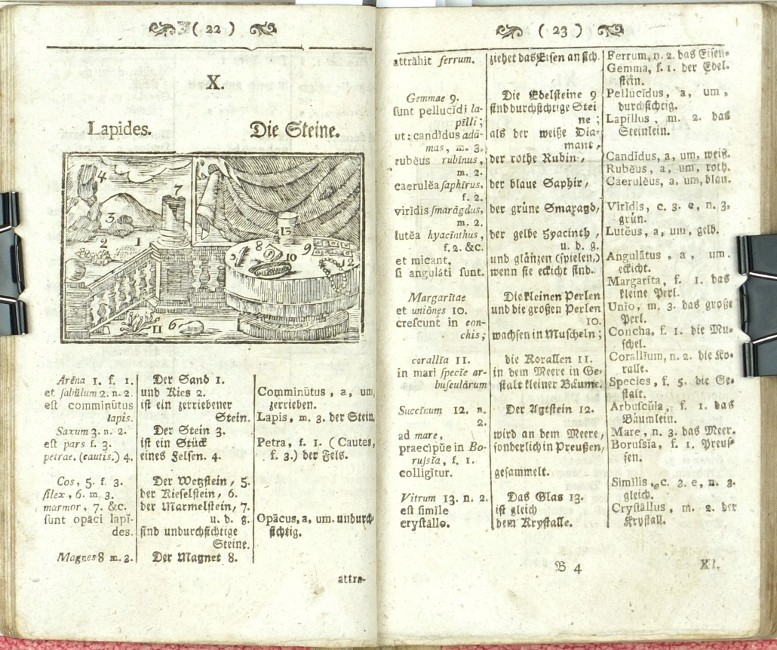 ( 22 )
X.
Lapides. Die Steine.
4
7
3
2
1
13
8
9
10
5
12
11
6
Arēna 1. f. 1.
et sabŭlum 2. n. 2.
est comminūtus
lapis.
Saxum 3. n. 2.
est pars f. 3.
petrae. (cautis.) 4.
Cos, 5. f. 3.
silex, 6. m. 3.
marmor, 7. &c.
sunt opāci lapĭ-
des.
Magnes 8 m. 3.
Der Sand 1.
und Kies 2.
ist ein zerriebener
Stein.
Der Stein 3.
ist ein Stück
eines Felsen. 4.
Der Wetzstein, 5.
der Kieselstein, 6.
der Marmelstein, 7.
u. d. g.
sind undurchsichtige
Steine.
Der Magnet 8.
Comminūtus, a, um,
zerrieben.
Lapis, m. 3. der Stein.
Petra, f. 1. (Cautes,
f. 3.) der Fels.
Opācus, a, um. undurch-
sichtig.
attra-
( 23 )
attrăhit ferrum.
Gemmae 9.
sunt pellucĭdi la-
pilli;
ut: candĭdus adă-
mas, m. 3.
rubĕus rubīnus,
m. 2.
caerulĕa saphīrus,
f. 2.
virĭdis smarăgdus,
m. 2.
lutĕa hyacinthus,
f. 2. &c.
et micant,
si anguláti sunt.
Margarĭtae
et uniōnes 10.
crescunt in con-
chis;
corallia 11.
in mari specie ar-
busculārum
Succĭnum 12. n.
2.
ad mare,
praecipŭe in Bo-
russia, f. 1.
colligĭtur.
Vitrum 13. n. 2.
est simile
crystallo.
ziehet das Eisen an sich.
Die Edelsteine 9
sind durchsichtige Stei
ne;
als der weiße Dia-
mant,
der rothe Rubin,
der blaue Saphir,
der grüne Smaragd,
der gelbe Hyacinth,
u. d. g.
und glänzen (spielen,)
wenn sie eckicht sind.
Die kleinen Perlen
und die großen Perlen
10.
wachsen in Muscheln;
die Korallen 11.
in dem Meere in Ge-
stalt kleiner Bäume.
Der Agtstein 12.
wird an dem Meere,
sonderlich in Preußen,
gesammelt.
Das Glas 13.
ist gleich
dem Krystalle.
Ferrum, n. 2. das Eisen-
Gemma, f. 1. der Edel-
stein.
Pellucĭdus, a, um,
durchsichtig.
Lapillus, m. 2. das
Steinlein.
Candĭdus, a, um, weiß.
Rubĕus, a, um, roth.
Caerulĕus, a, um, blau.
Virĭdis, c. 3. e, n. 3.
grün.
Lutĕus, a, um, gelb.
Angulātus, a, um.
eckicht.
Margarĭta, f. 1. das
kleine Perl.
Unio, m. 3. das große
Perl.
Concha, f. 1. die Mu-
schel.
Corallium, n. 2. die Ko-
ralle.
Species, f. 5. die Ge-
stalt.
Arbuscŭla, f. 1. das
Bäumlein.
Mare, n. 3. das Meer.
Borussia, f. 1. Preuf-
sen.
Simĭlis, c. 3. e, n. 3.
gleich.
Crystallus, m. 2. der
Krystall.
B 4
XI.